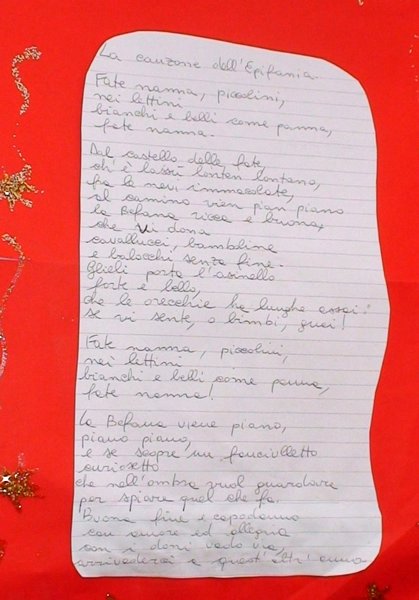 La canzone dell'Epifania.
Fate nanna, piccolini,
nei lettini
bianchi e belli come panna,
fate nanna.
Dal castello delle fate,
ch'è lassù lontan lontano,
fra le nevi immacolate,
al camino vien pian piano
la Befana ricca e buona,
che vi dona
cavallucci, bamboline
e balocchi senza fine.
Glieli porta l'asinello
forte e bello,
che le orecchie ha lunghe assai:
se vi sente, o bimbi, guai!
Fate nanna, piccolini,
nei lettini
bianchi e belli come panna,
fate nanna!
La Befana viene piano,
piano piano,
e se scopre un fanciulletto
curiosetto
che nell'ombra vuol guardare
per spiare quel che fa.
Buona fine e capodanno
con amore ed allegria
con i doni vado via,
arrivederci a quest'altr'anno